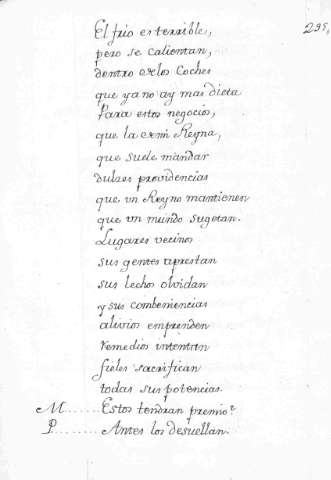 295,
El frio es terrible,
pero se calientan,
dentro de los Coches
que ya no ay mas dieta
Para estos negocios,
que la de mi Reyna,
que suele mandar
dulzes providencias
que un Reyno mantienen
que un mundo sugetan.
Lugares vecinos
sus gentes aprestan
sus lechos olvidan
y sus combeniencias
alivios emprenden
remedios intentan
fieles sacrifican
todas sus potencias.
M....... Estos tendran premio?
P........ Antes los desuellan.